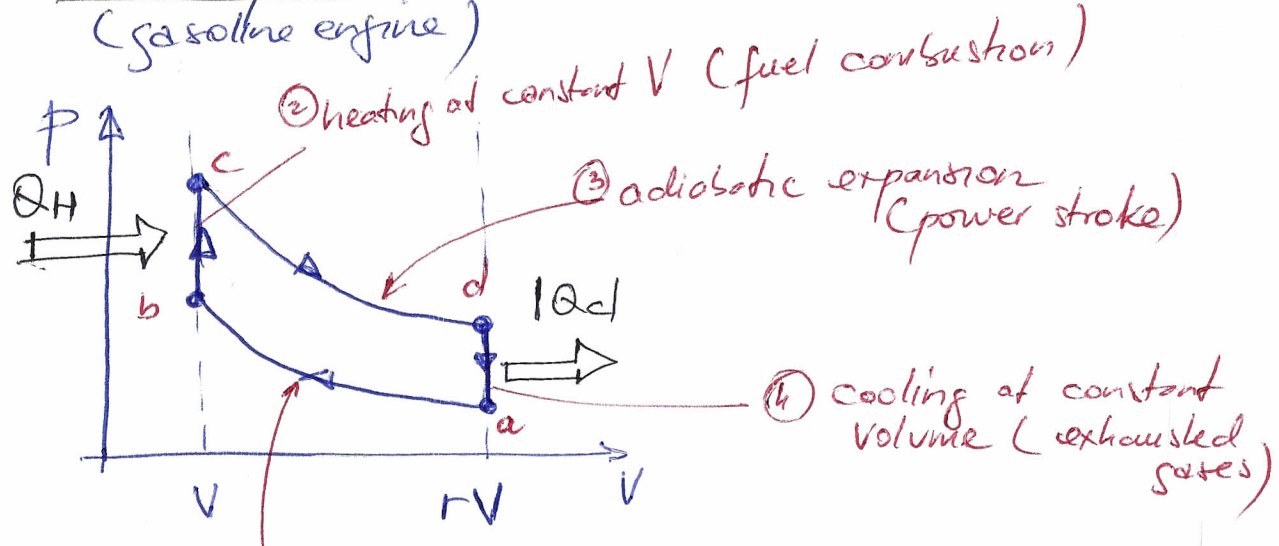 (gasoline engine)
② heating at constant V (fuel combustion)
P
c
QH
③ adiabatic expansion
(power stroke)
d
b
|Qc|
④ cooling at constant
volume (exhausted
gases)
a
V
rV
V